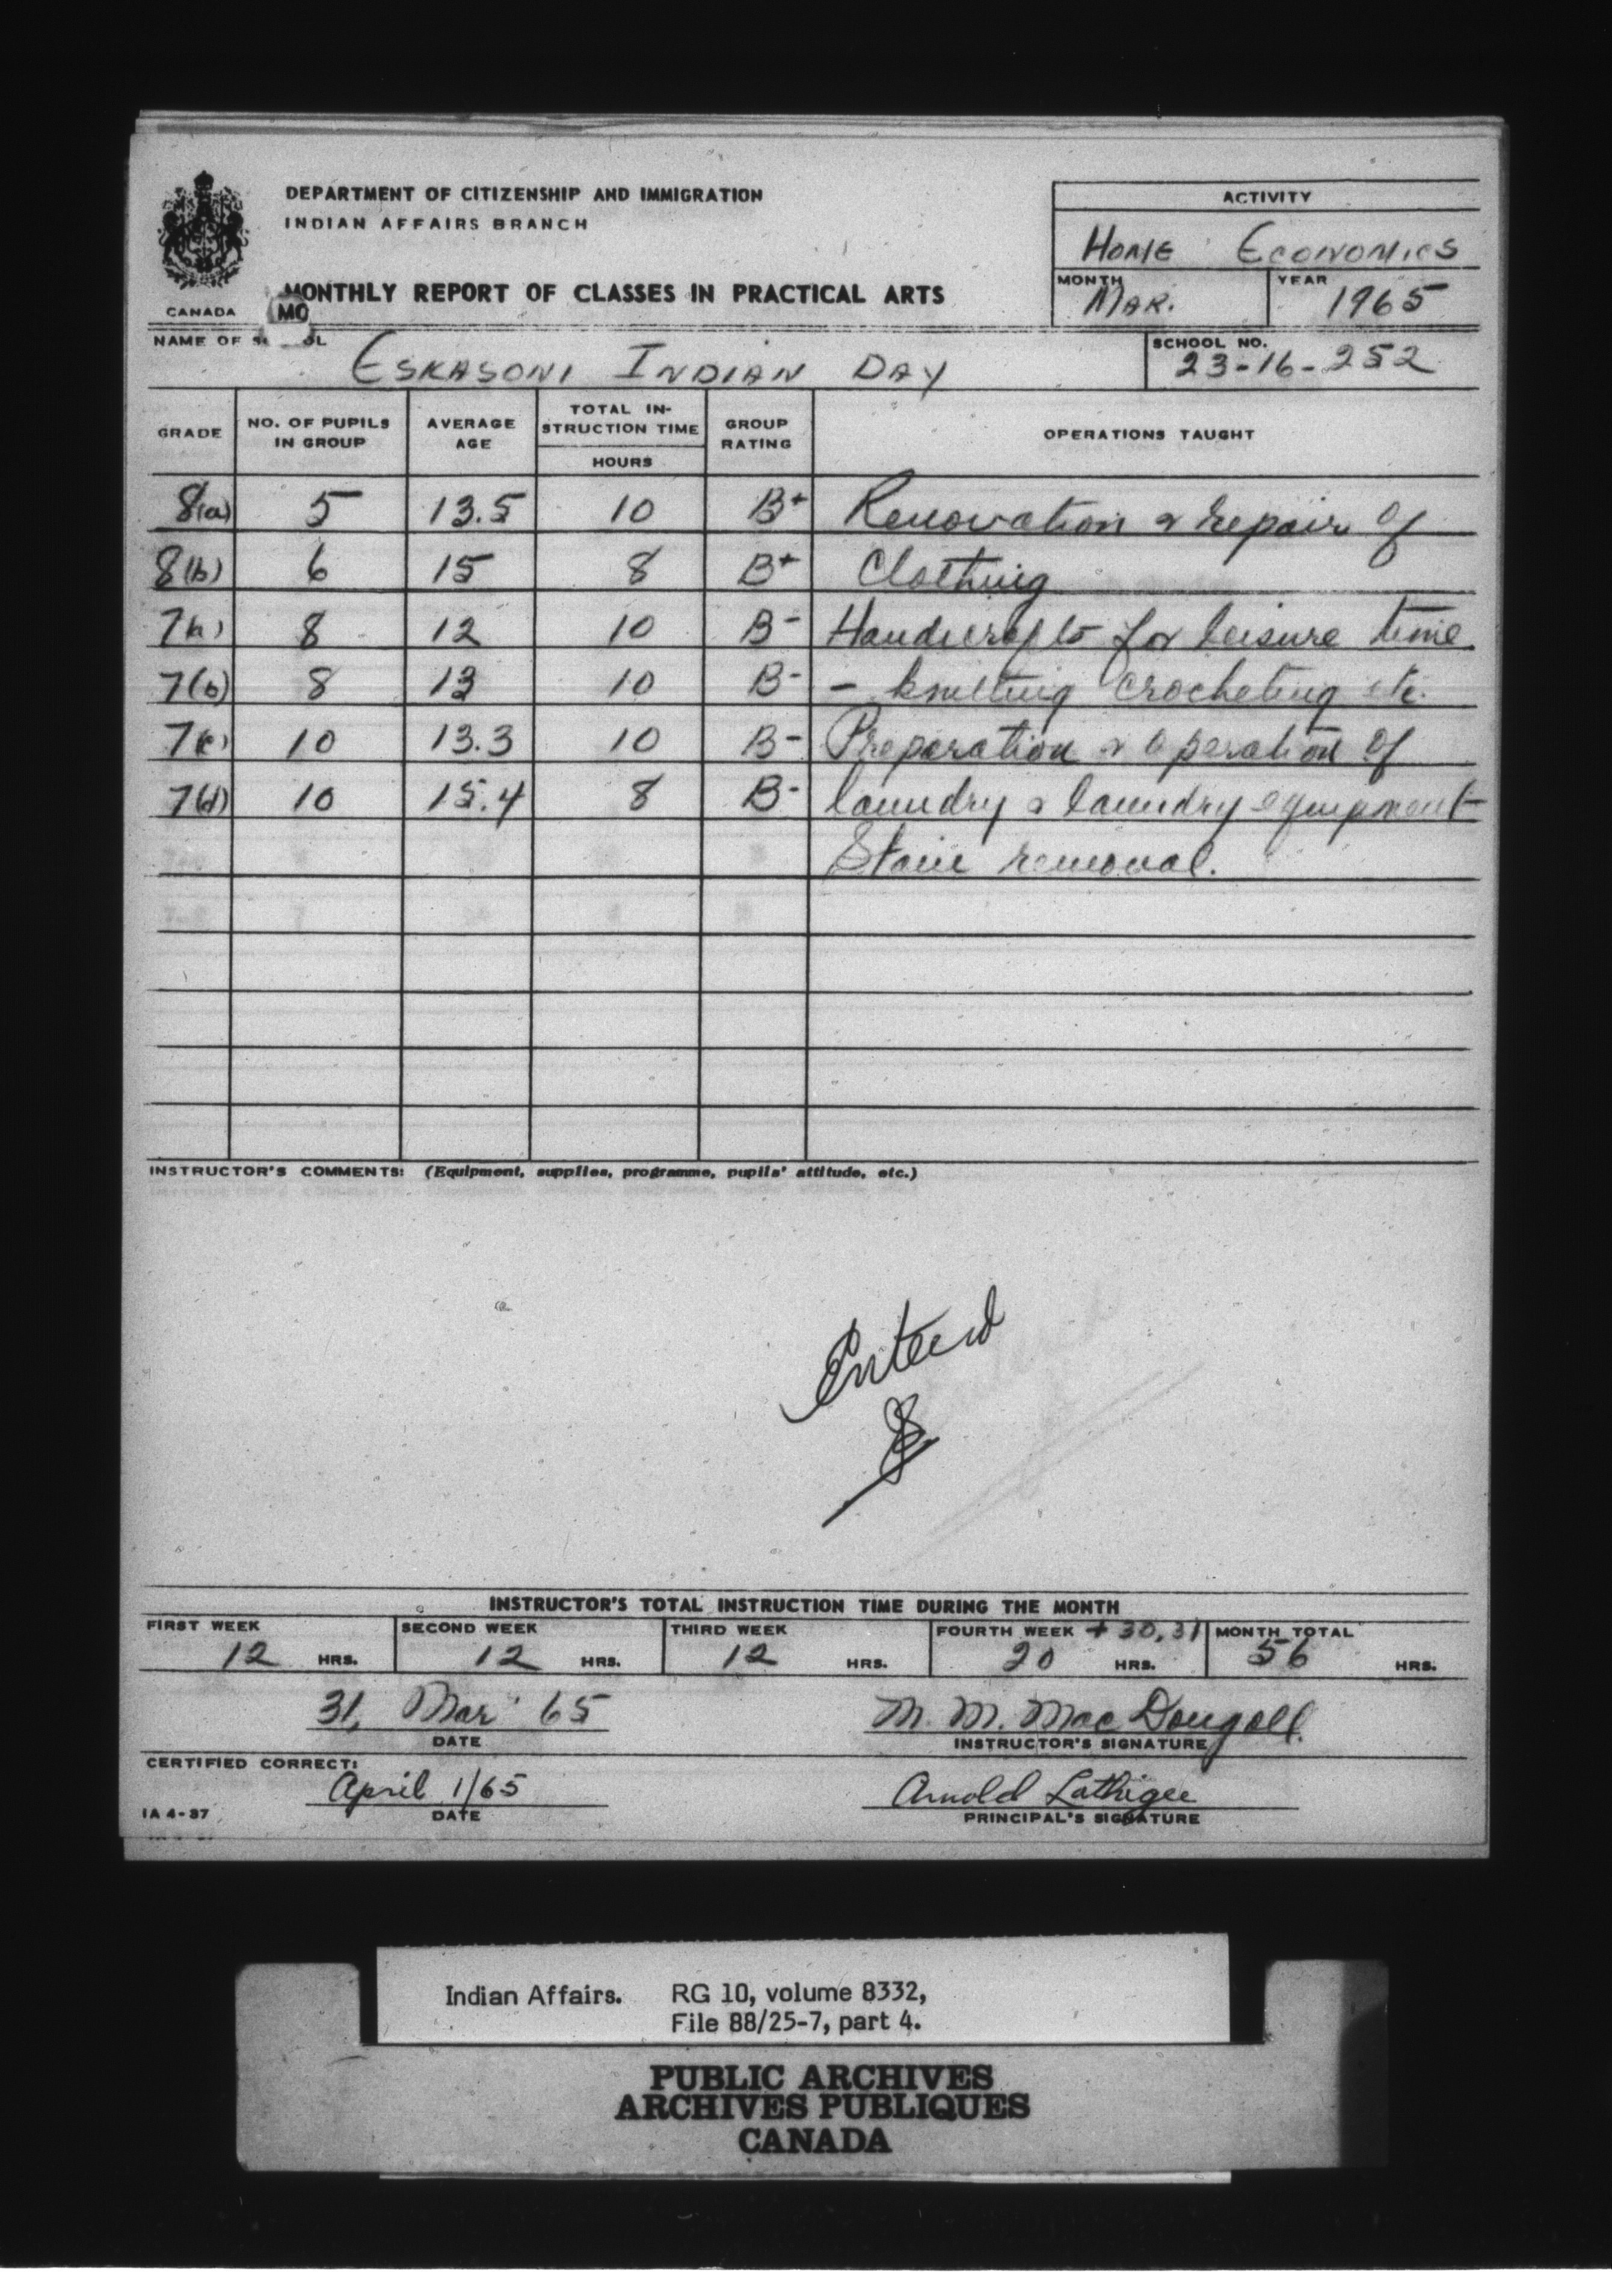 DEPARTMENT OF CITIZENSHIP AND IMMIGRATION
INDIAN AFFAIRS BRANCH
MONTHLY REPORT OF CLASSES IN PRACTICAL ARTS
CANADA
MO
ACTIVITY
HOME ECONOMICS
MONTH YEAR
MAR. 1965
NAME OF SCHOOL
ESKASONI INDIAN DAY
SCHOOL NO.
23-16-252
GRADE NO. OF PUPILS IN GROUP AVERAGE AGE TOTAL INSTRUCTION TIME HOURS GROUP RATING OPERATIONS TAUGHT
8(a) 5 13.5 10 B+ Renovation & repair of
8(b) 6 15 8 B+ Clothing
7(a) 8 12 10 B- Handicrafts for leisure time.
7(b) 8 13 10 B- - knitting crocheting etc.
7(c) 10 13.3 10 B- Preparation & operation of
7(d) 10 15.4 8 B- laundry & laundry equipment
Stain removal.
INSTRUCTOR'S COMMENTS: (Equipment, supplies, programme, pupils' attitude, etc.)
Entered
INSTRUCTOR'S TOTAL INSTRUCTION TIME DURING THE MONTH
FIRST WEEK SECOND WEEK THIRD WEEK FOURTH WEEK + 30, 31 MONTH TOTAL
12 HRS. 12 HRS. 12 HRS. 20 HRS. 56 HRS.
31, Mar 65 M. M. MacDougall.
DATE INSTRUCTOR'S SIGNATURE
CERTIFIED CORRECT:
April 1/65 Arnold Lathigee
IA 4-37 DATE PRINCIPAL'S SIGNATURE
Indian Affairs. RG 10, volume 8332,
File 88/25-7, part 4.
PUBLIC ARCHIVES
ARCHIVES PUBLIQUES
CANADA